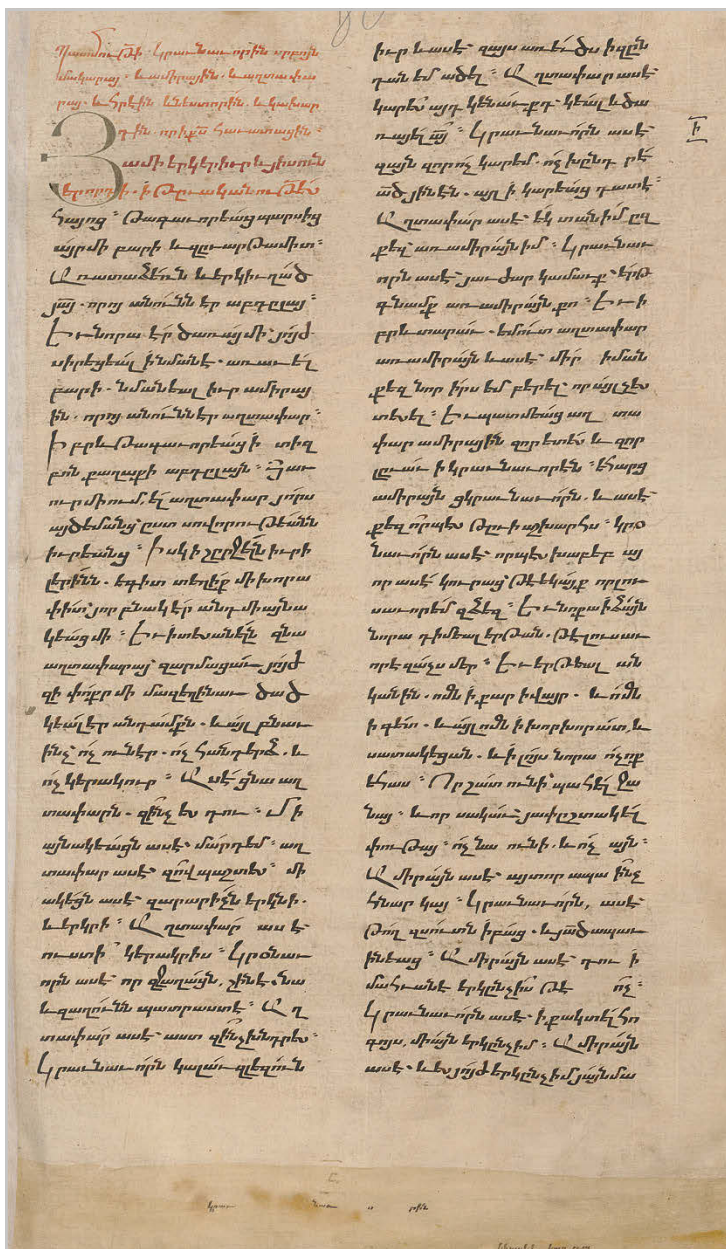 Պատմութի· կրաւնաւորին սրբոյն
մակարայ· և ամիրային· և աղտափա
րայ· և հրէին և նետորին· և կախար
դին· որք քս հաւատացին։
Յամի երկերիւր և յիսուն
երորդի· ի թուականութես
հայոց։ թագաւորեաց պարսից
այր մի բարի և զըւարթամիտ։
Առատաձեռն և երկիւղած
յայ· որոյ անունն էր աբդըլայ։
Եւ նորա էր ծառայ մի յոյժ
սիրեցեալ ինմանէ· առաւել
բարի· նմանեալ իւր ամիրայ
ին· որոյ անունն էր աղտափար։
Ի բրև թագաւորեաց ի տիզ
բոն քաղաքի աբդըլայն։ Յաւ
ուր միում ել աղտափար յորս
այծեմանց ըստ սովորութեանն
իւրեանց։ Իսկ ի շըրջելն իւր ի
լերինն· եգիտ տեղիք մի խորա
փիտ· յոր բնակէր անդ միայնա
կեաց մի։ Եւ ի տեսանելն զնա
աղտափարայ զարմացաւ յոյժ
զի փոքր մի մազեղինաւ ծած
կեալ էր անդամքն· և այլ բնաւ
ինչ ոչ ունէր· ոչ հանդերձ· և
ոչ կերակուր։ Ասէ ցնա աղ
տափարն· զինչ ես դու· Մի
այնակեացն ասէ· մարդ եմ· աղ
տափար ասէ զով պաշտես· մի
ակեցն ասէ զարարիչն երկնի·
և երկրի։ Աղտափար ասէ
ուստի կերակրիս։ Կրօնաւ
որն ասէ որ զաղայն, շինէ· նա
և զալուրն պատրաստէ։ Աղ
տափար ասէ աստ զինչ խնդրես·
Կրաւնաւորն կալաւ զլեզուն
իւր և ասէ զայս առեծս իզըն
դան եմ ածել։ Աղտափար ասէ
կարես այդ կենաւքդ կեալ և ծա
ռայել այ։ Կրաւնաւորն ասէ
զայն զոր ոչ կարեմ· ոչ խընդրէ
ած յինէն· այլ ի կարեաց դատէ·
Աղտափար ասէ եկ տանիմ ըզ
քեզ առ ամիրայն իմ։ Կրաւնաւ
որն ասէ յաւժար կամաւք· երթ
գնամք առ ամիրայն քո։ Եւ ի
բրև տարաւ· եմուտ աղտափար
առ ամիրայն և ասէ միր իման
քեզ նոր իրս եմ բերել որ այլ չես
տեսել։ Եւ պատմեաց աղ տա
փար ամիրային զոր ետես և զոր
լըւաւ ի կրաւնաւորէն։ Եհարց
ամիրայն ցկրաւնաւորն· և ասէ
քեզ որպես թըւի աշխարհս։ կրօ
նաւորն ասէ որպես խաբեբ այ
որ ասէ կուրաց թէ եկայք որ լու
սաւորեմ զձեզ։ Եւ նոքա ի ձայն
նորա դիմեալ երթան· թէ լուսաւ
որէ զաչս մեր։ Եւ երթեալ ան
կանին· ոմն ի քար ի վայր· և ոմն
ի գետ· և այլ ոմն ի խորխորատ, և
սատակեցան· և ի լոյս նորա ոչ ոք
եհաս։ Որ շատ ունի պահէլ ջա
նայ· և որ սակաւ յափըշտակել
փութայ· ոչ նա ունի· և ոչ այն։
Ամիրայն ասէ այտոր ապա ինչ
հնար կայ։ Կրաւնաւորն, ասէ
թող զսուտն ի բաց· և յած ապաւ
ինեաց։ Ամիրայն ասէ դու ի
մահուանէ երկընչիս թէ ոչ։
Կրաւնաւորն ասէ· ի քակտել հո
գոյս, միայն երկընչիմ։ Ամիրայն
ասէ· և ես յոյժ երկընչիմ յայնմա
Ի